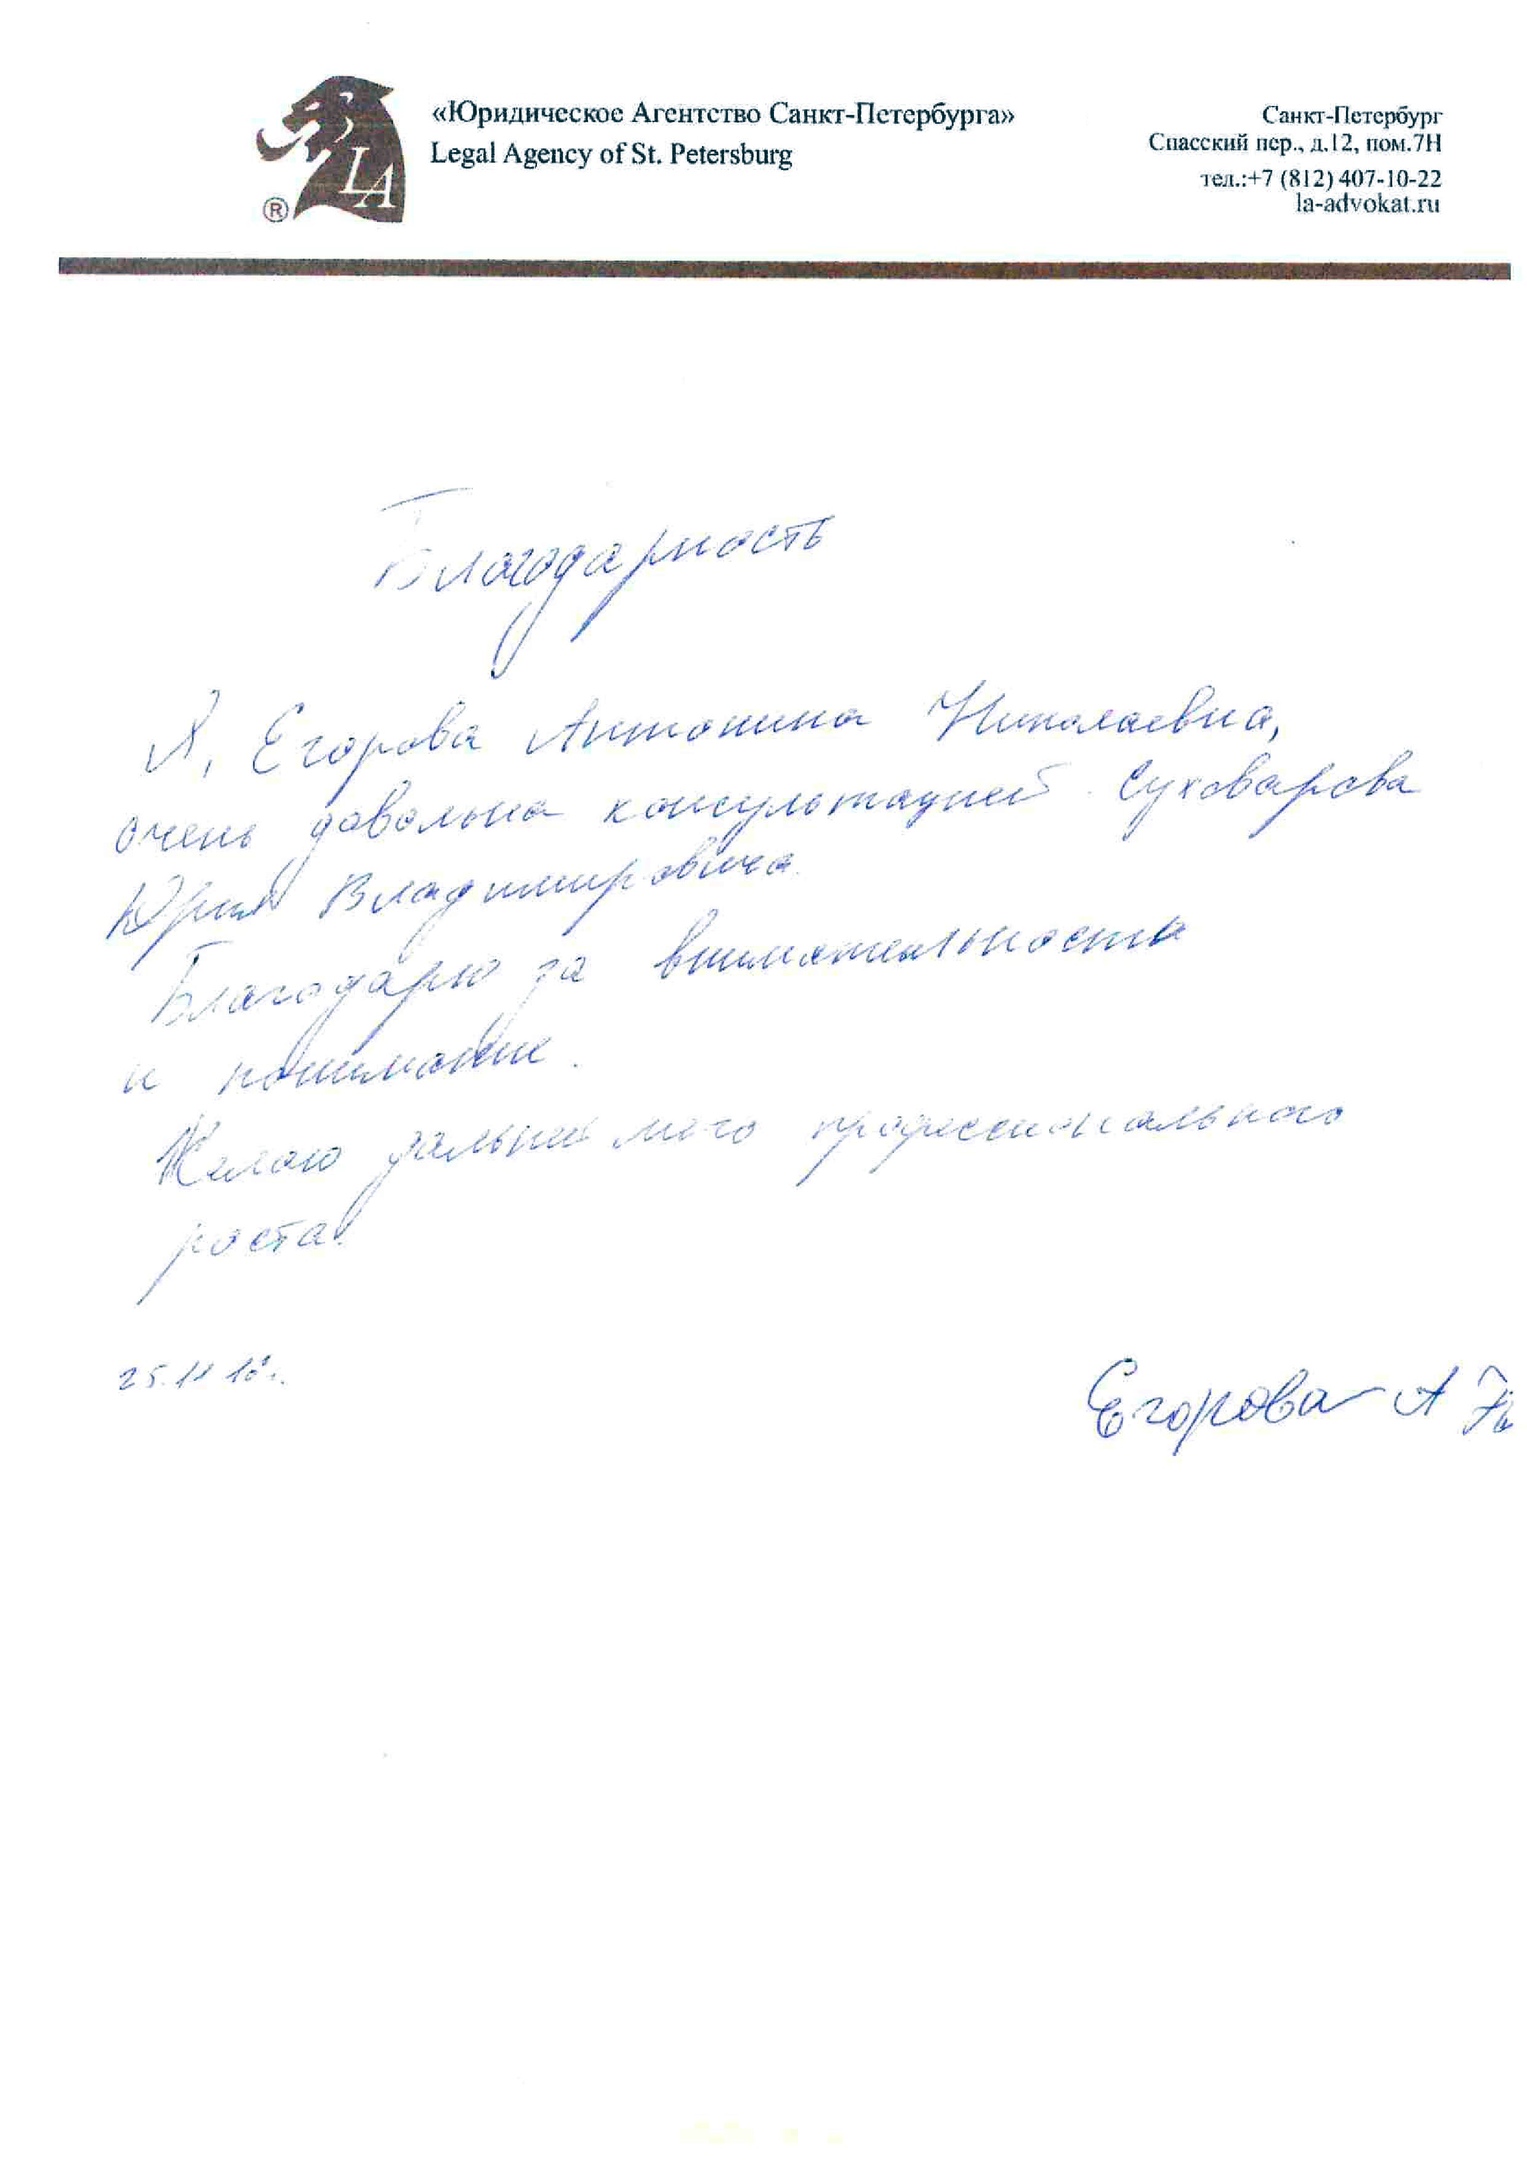 «Юридическое Агентство Санкт-Петербурга»
Legal Agency of St. Petersburg
LA
®
Санкт-Петербург
Спасский пер., д.12, пом.7Н
тел.:+7 (812) 407-10-22
la-advokat.ru
Благодарность
Я, Егорова Антонина Николаевна,
очень довольна консультацией Суховарова
Юрия Владимировича.
Благодарю за внимательность
и понимание.
Желаю дальнейшего профессионального
роста.
25.11
Егорова А